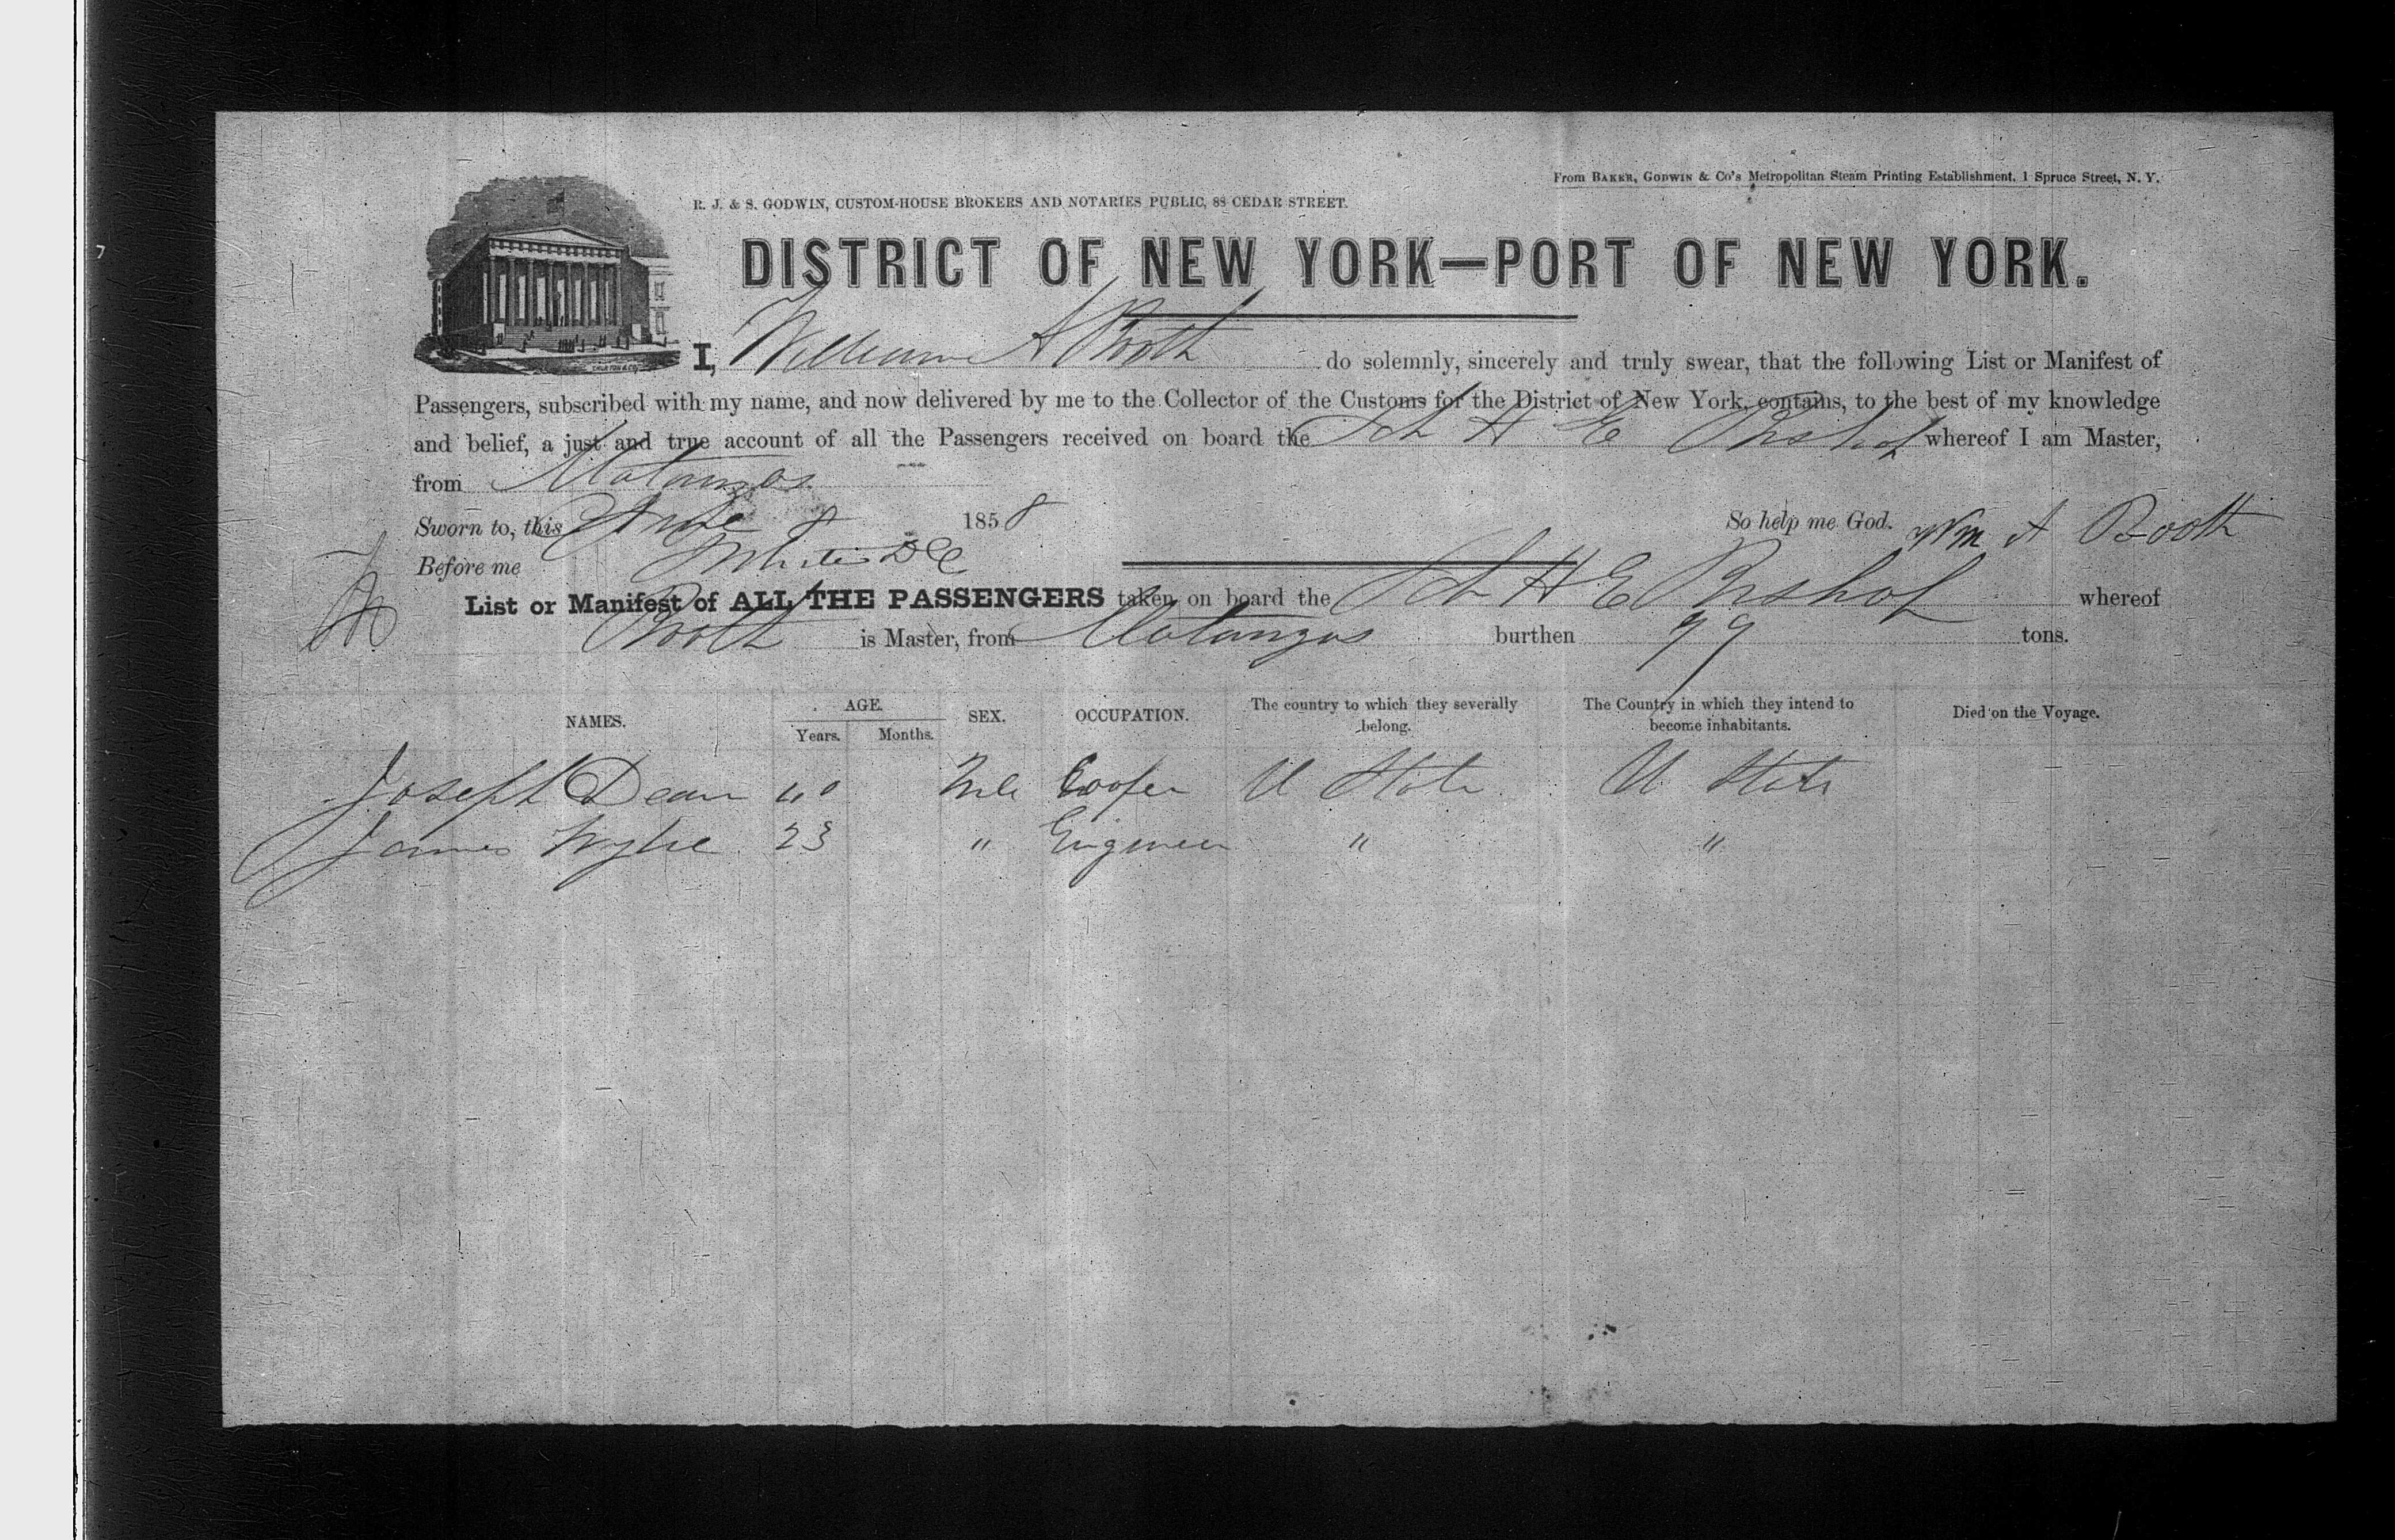 From BAKER, GODWIN & Co's Metropolitan Steam Printing Establishment, 1 Spruce Street, N. Y.
R. J. & S. GODWIN, CUSTOM-HOUSE BROKERS AND NOTARIES PUBLIC, 88 CEDAR STREET.
DISTRICT OF NEW YORK—PORT OF NEW YORK.
I, William A Booth do solemnly, sincerely and truly swear, that the following List or Manifest of
Passengers, subscribed with my name, and now delivered by me to the Collector of the Customs for the District of New York, contains, to the best of my knowledge
and belief, a just and true account of all the Passengers received on board the Sch H E Bishop whereof I am Master,
from Matanzas
Sworn to, this June 8 1858 So help me God. Wm A Booth
Before me
List or Manifest of ALL THE PASSENGERS taken on board the Sch H E Bishop whereof
Booth is Master, from Matanzas burthen tons.
NAMES. AGE. Years. Months. SEX. OCCUPATION. The country to which they severally belong. The Country in which they intend to become inhabitants. Died on the Voyage.
Joseph Dean 40 Mle Cooper U State U State
James Wylie 23 " Engineer " "